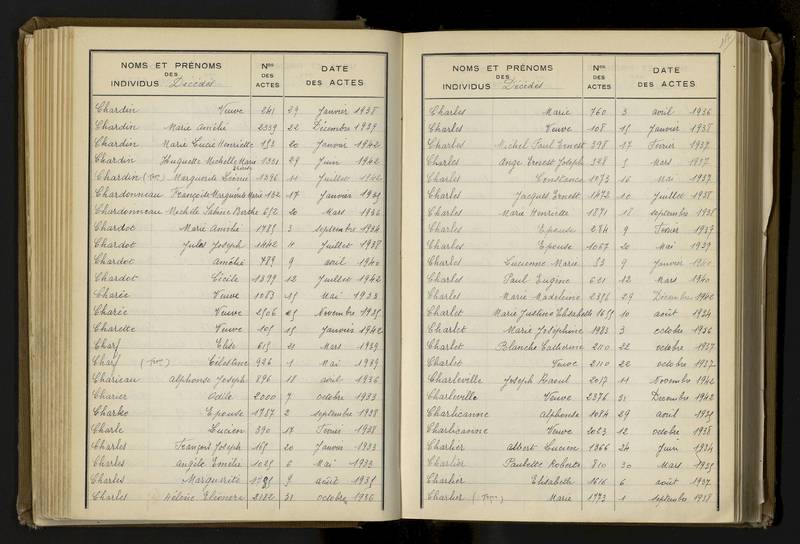 NOMS ET PRÉNOMS DES INDIVIDUS Décédés Nos DES ACTES DATE DES ACTES
Chardin Veuve 241 29 Janvier 1938
Chardin Marie Amélie 2339 22 Décembre 1939
Chardin Marie Lucie Henriette 153 20 Janvier 1942
Chardin Huguette Michelle Marie 1331 29 Juin 1942
Chardin Marguerite 1396 11 Juillet 1942
Chardonneau Françoise Marguerite Marie 132 17 Janvier 1935
Chardonneau Michelle Berthe 652 20 Mars 1936
Chardot Marie Amélie 1785 3 septembre 1934
Chardot Jules Joseph 1442 11 Juillet 1938
Chardot Amélie 789 9 avril 1940
Chardot Cécile 1379 12 Juillet 1942
Charée Veuve 1083 15 Mai 1933
Charée Veuve 2506 25 Novembre 1935
Charette Veuve 105 15 Janvier 1942
Charf Elise 615 21 Mars 1939
Charf Célestine 926 1 Mai 1939
Charieau Alphonse Joseph 896 18 avril 1936
Charier Odile 2000 7 octobre 1933
Charko Epouse 1787 2 septembre 1938
Charle Lucien 390 17 Février 1938
Charles François Joseph 165 20 Janvier 1933
Charles Angèle Emilie 1025 6 Mai 1933
Charles Marguerite 9 août 1935
Charles Hélène 2122 31 octobre 1936
NOMS ET PRÉNOMS DES INDIVIDUS Décédés Nos DES ACTES DATE DES ACTES
Charles Marie 760 3 avril 1936
Charles Veuve 108 15 Janvier 1938
Charles Michel Paul Ernest 398 17 Février 1937
Charles Ange Ernest Joseph 528 5 Mars 1937
Charles Constance 1073 16 Mai 1937
Charles Jacques Ernest 1472 10 Juillet 1938
Charles Marie Henriette 1871 18 septembre 1938
Charles Epouse 284 9 Février 1939
Charles Epouse 1067 20 Mai 1939
Charles Lucienne Marie 53 9 Janvier 1940
Charles Paul Eugène 621 12 Mars 1940
Charles Marie Madeleine 2356 29 Décembre 1942
Charlet Marie Justine Elisabeth 1655 10 août 1934
Charlet Marie Joséphine 1983 3 octobre 1936
Charlet Blanche Catherine 2110 22 octobre 1937
Charlet Veuve 2110 22 octobre 1937
Charleville Joseph Raoul 2017 11 Novembre 1942
Charleville Veuve 2376 31 Décembre 1942
Charlicanne Alphonse 1084 29 avril 1935
Charlicanne Veuve 2023 12 octobre 1938
Charlier Albert Lucien 1366 24 Juin 1934
Charlier Paulette Roberte 810 30 Mars 1935
Charlier Elisabeth 1616 6 août 1937
Charlier Marie 1773 1 septembre 1938